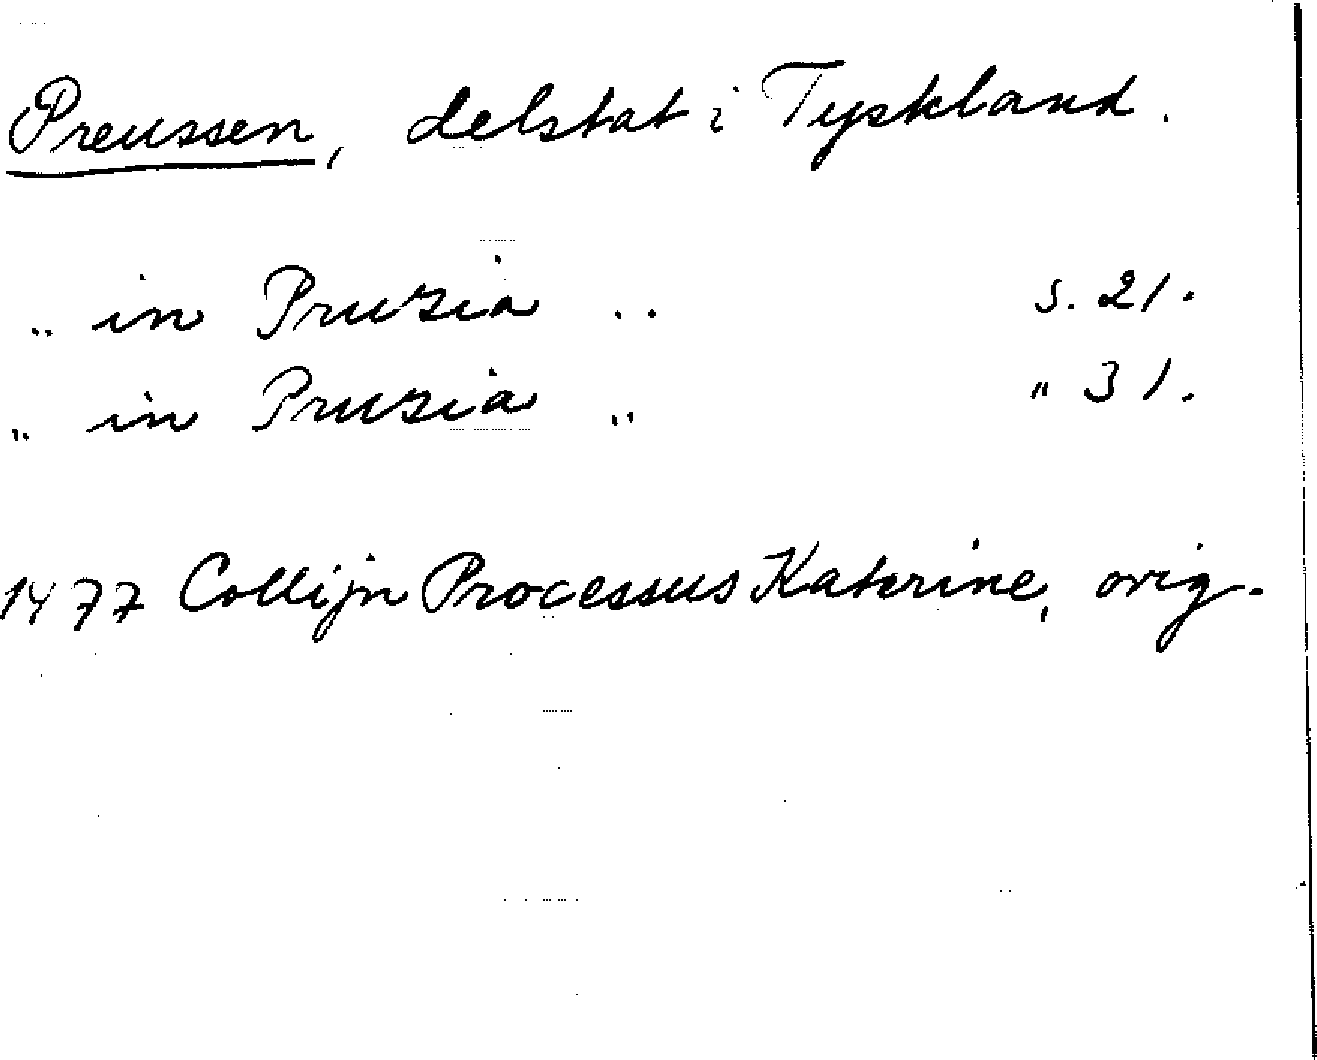 Preussen, delstat i Tyskland.
.. in Pruzia .. s. 21.
.. in Pruzia .. " 31.
1477 Collijn Processus Katerine, orig.